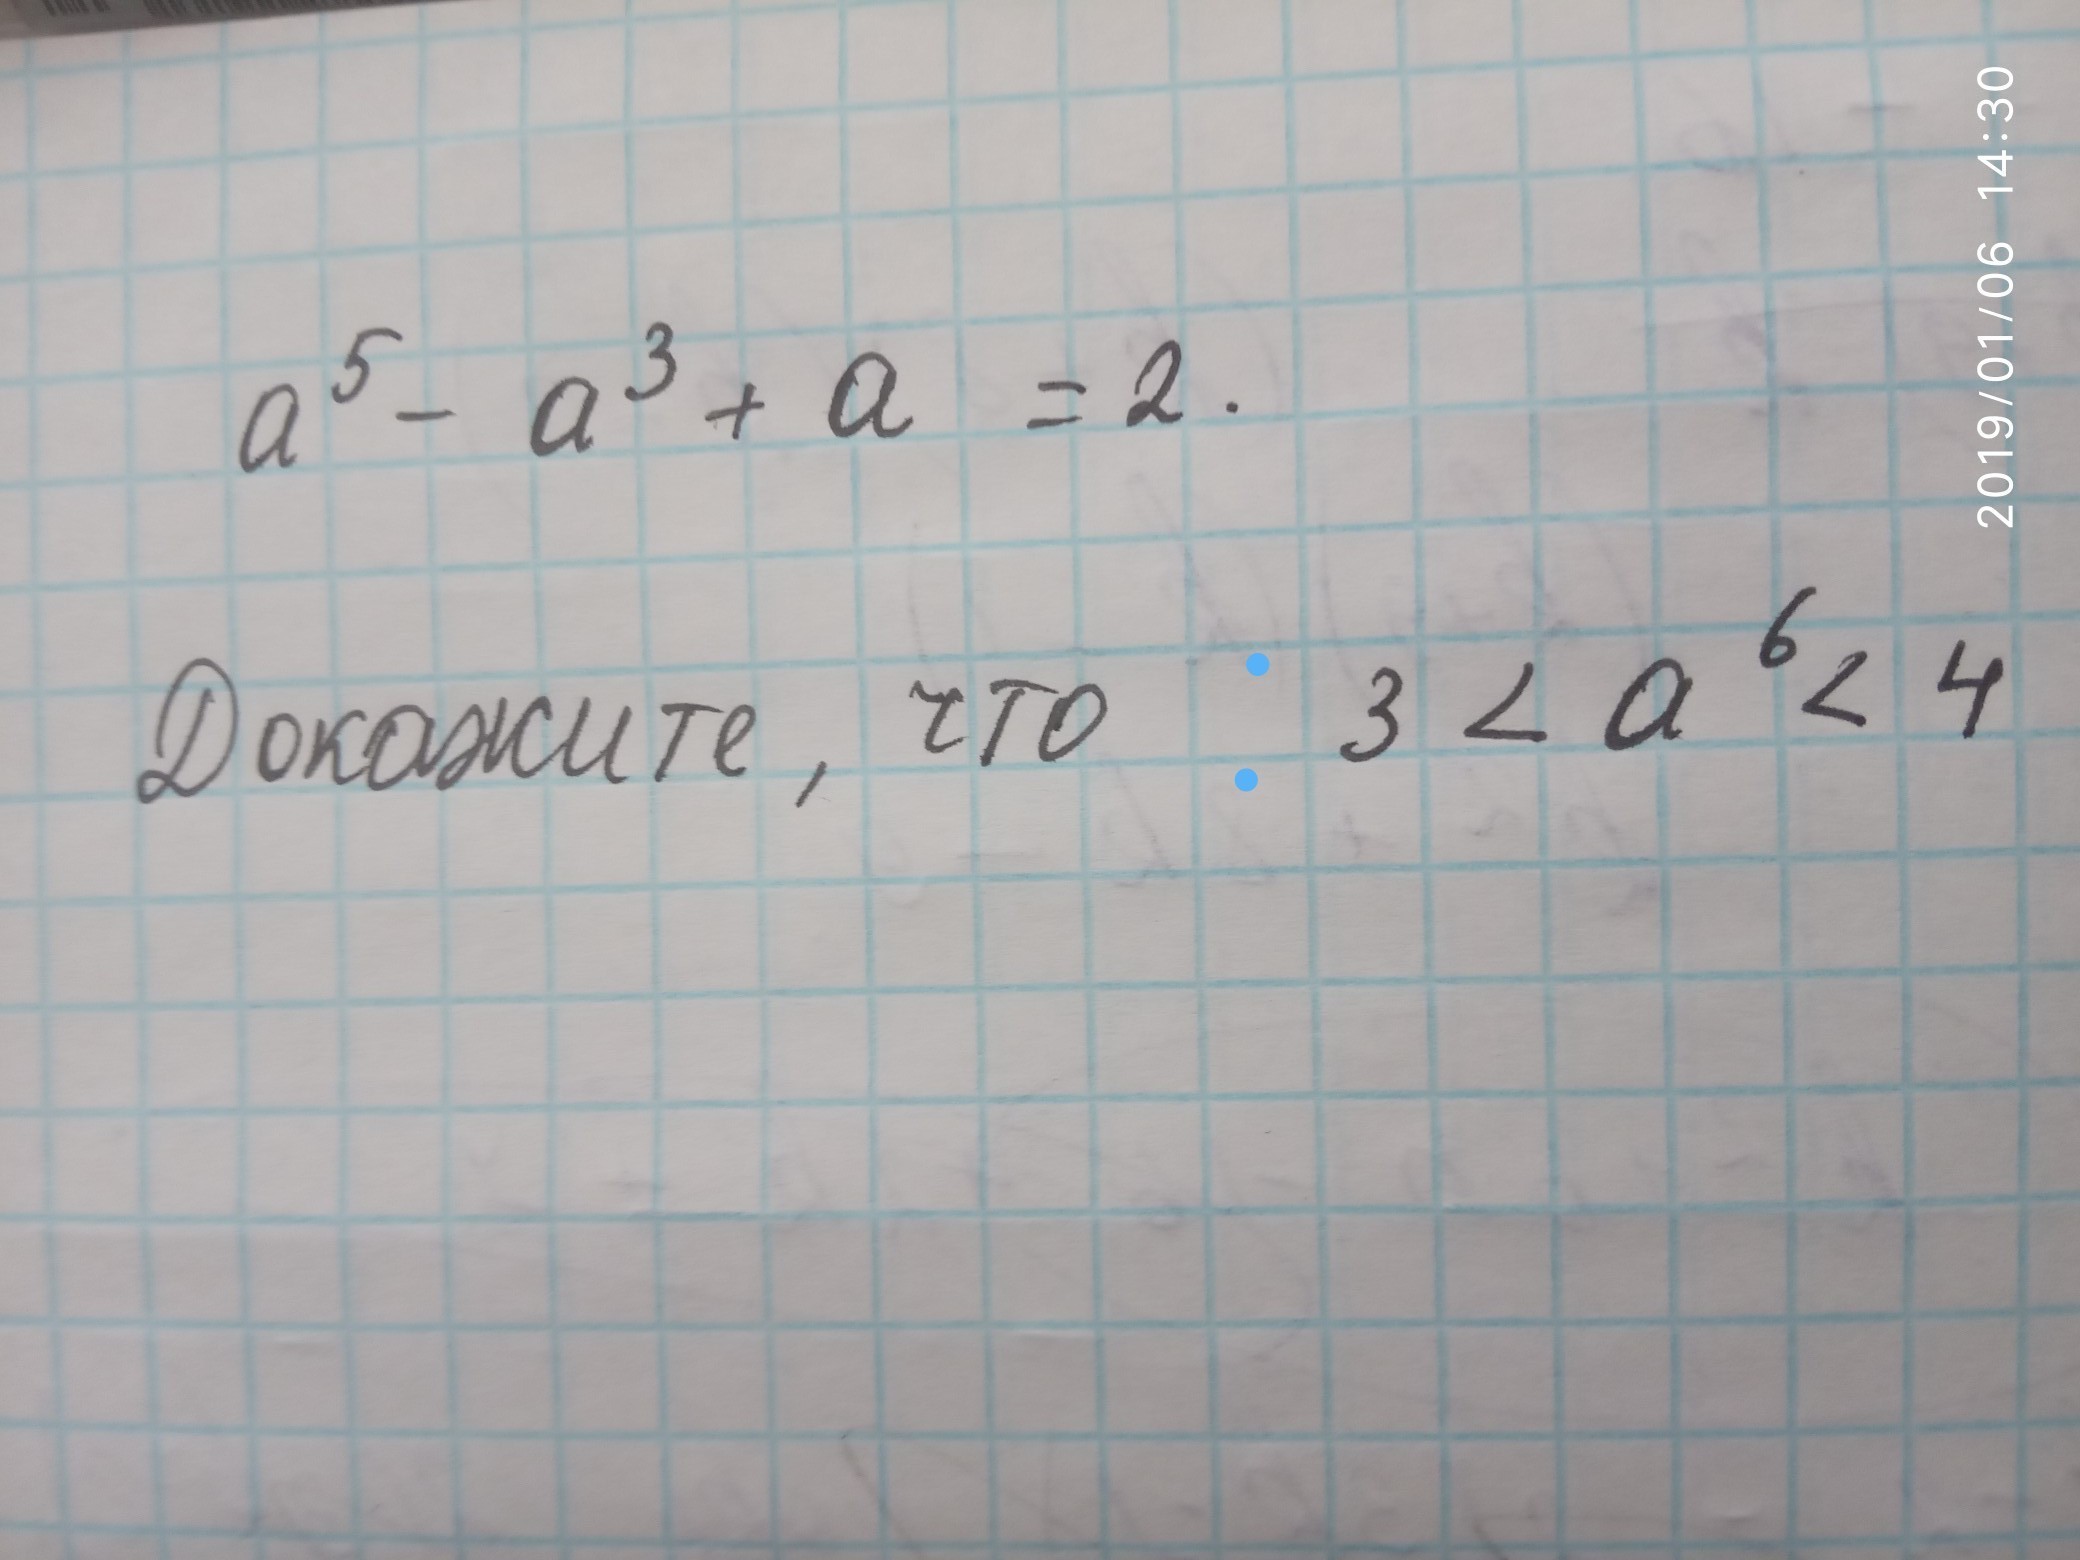 a⁵ - a³ + a = 2.
Докажите, что : 3 < a⁶ < 4
2019/01/06 14:30